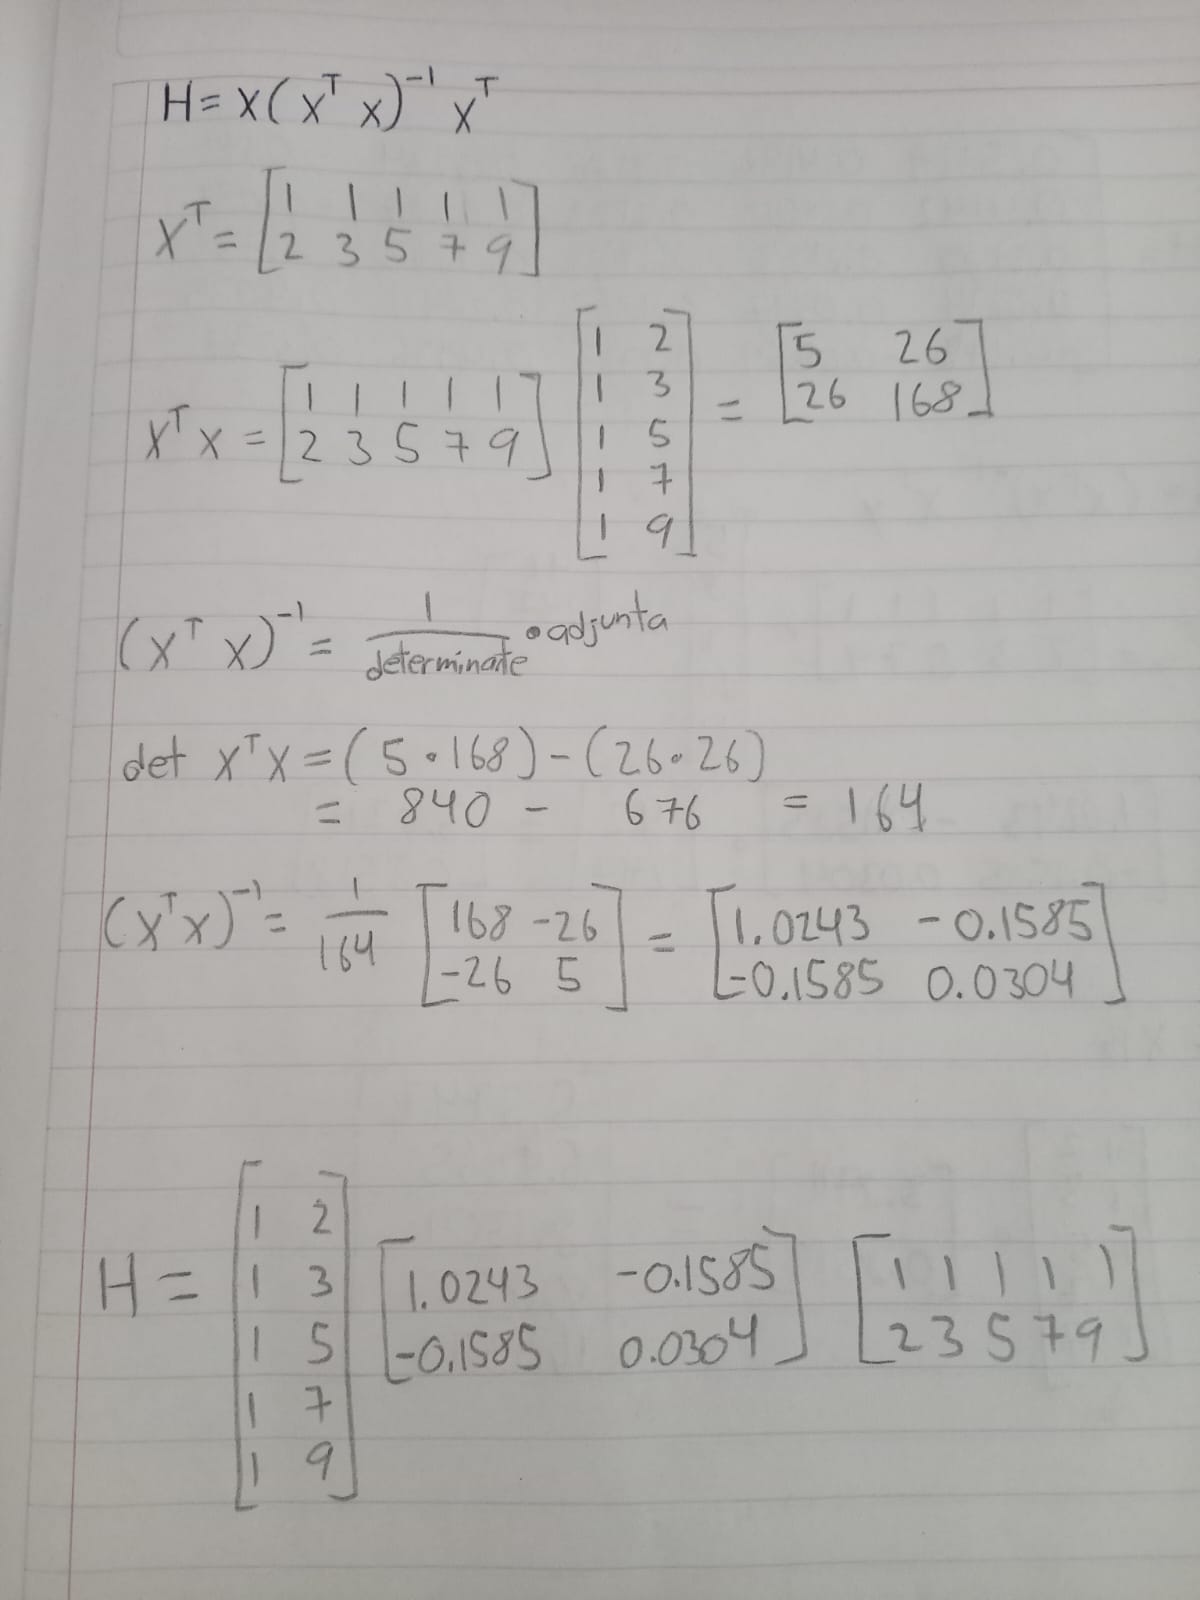 H = X(X^T X)^-1 X^T
X^T = [1 1 1 1 1
2 3 5 7 9]
X^T X = [1 1 1 1 1
2 3 5 7 9] [1 2
1 3
1 5
1 7
1 9] = [5 26
26 168]
(X^T X)^-1 = 1/determinate • adjunta
det X^T X = (5 • 168) - (26 • 26)
= 840 - 676 = 164
(X^T X)^-1 = 1/164 [168 -26
-26 5] = [1.0243 -0.1585
-0.1585 0.0304]
H = [1 2
1 3
1 5
1 7
1 9] [1.0243 -0.1585
-0.1585 0.0304] [1 1 1 1 1
2 3 5 7 9]